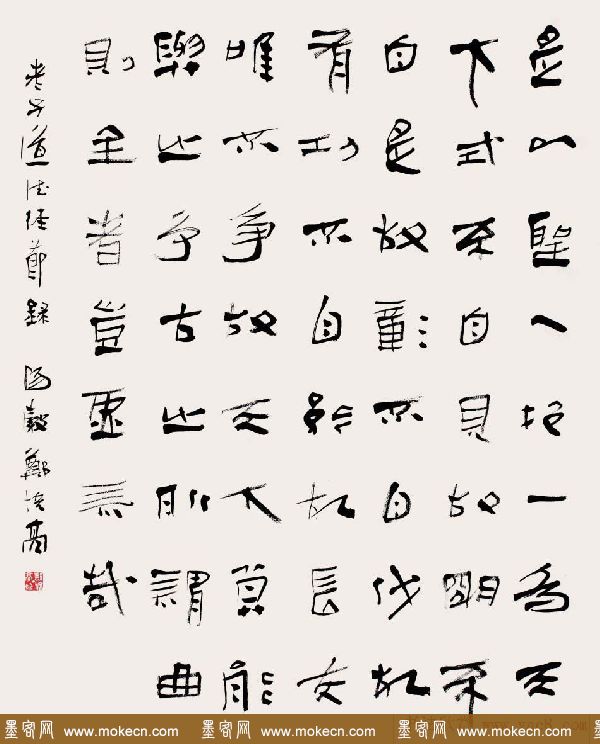 是以聖人抱一為天
下式不自見故明不
自是故彰不自伐故
有功不自矜故長夫
唯不爭故天下莫能
與之爭古之所謂曲
則全者豈虛言哉
老子道德經節錄 鄭高
墨客网 www.mokecn.com 墨客网 www.mokecn.com 墨客网 www.mokecn.com